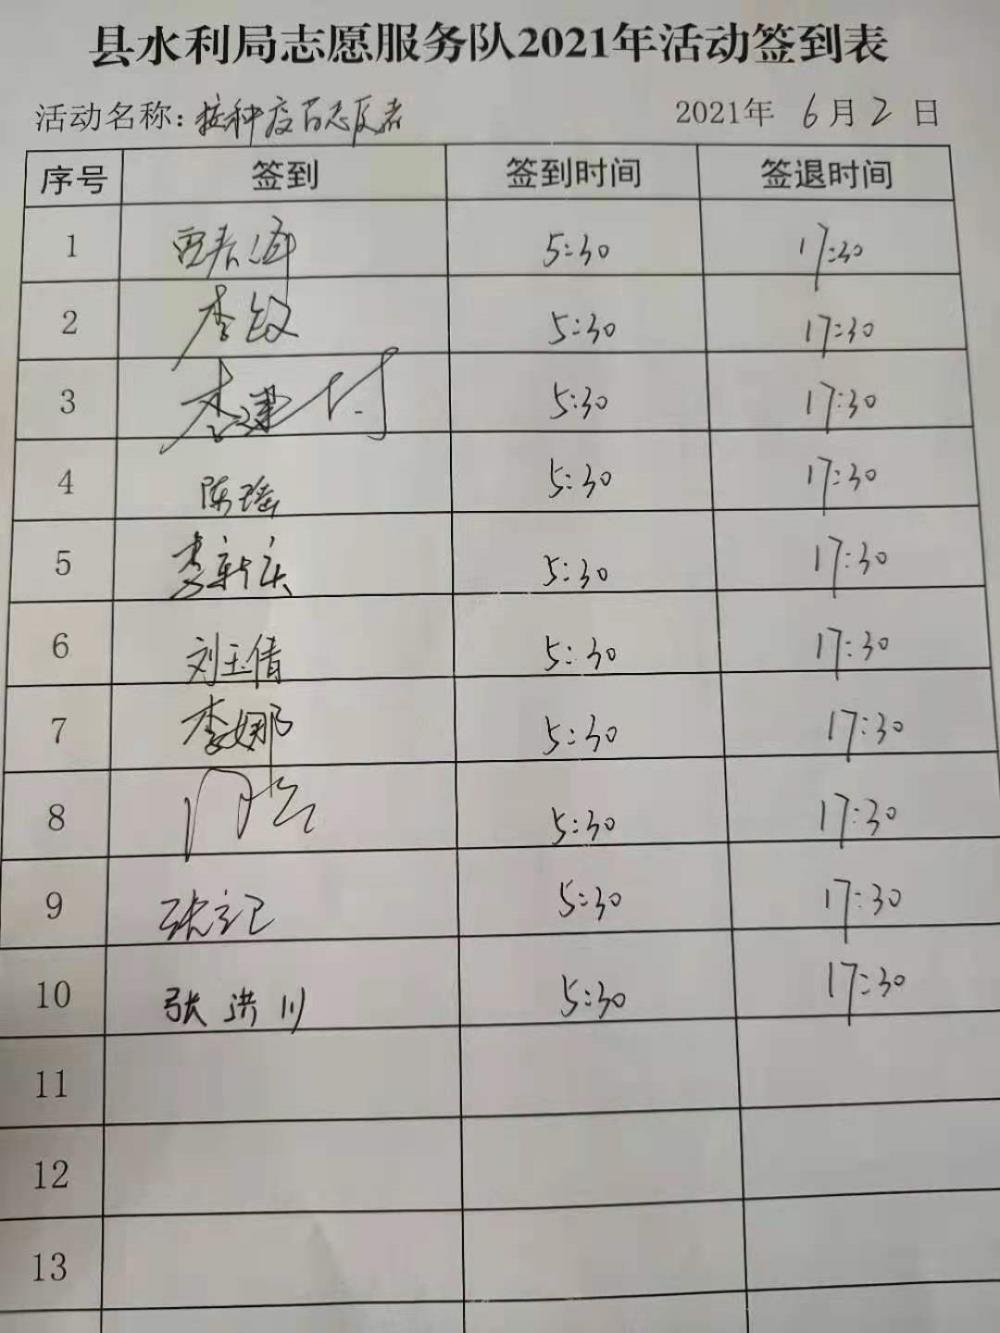 县水利局志愿服务队2021年活动签到表
活动名称：接种疫苗志愿者 2021年 6月2日
序号 签到 签到时间 签退时间
1 5:30 17:30
2 李敏 5:30 17:30
3 李建付 5:30 17:30
4 陈瑶 5:30 17:30
5 李新庆 5:30 17:30
6 刘玉倩 5:30 17:30
7 李娜 5:30 17:30
8 5:30 17:30
9 张记 5:30 17:30
10 张洪川 5:30 17:30
11
12
13